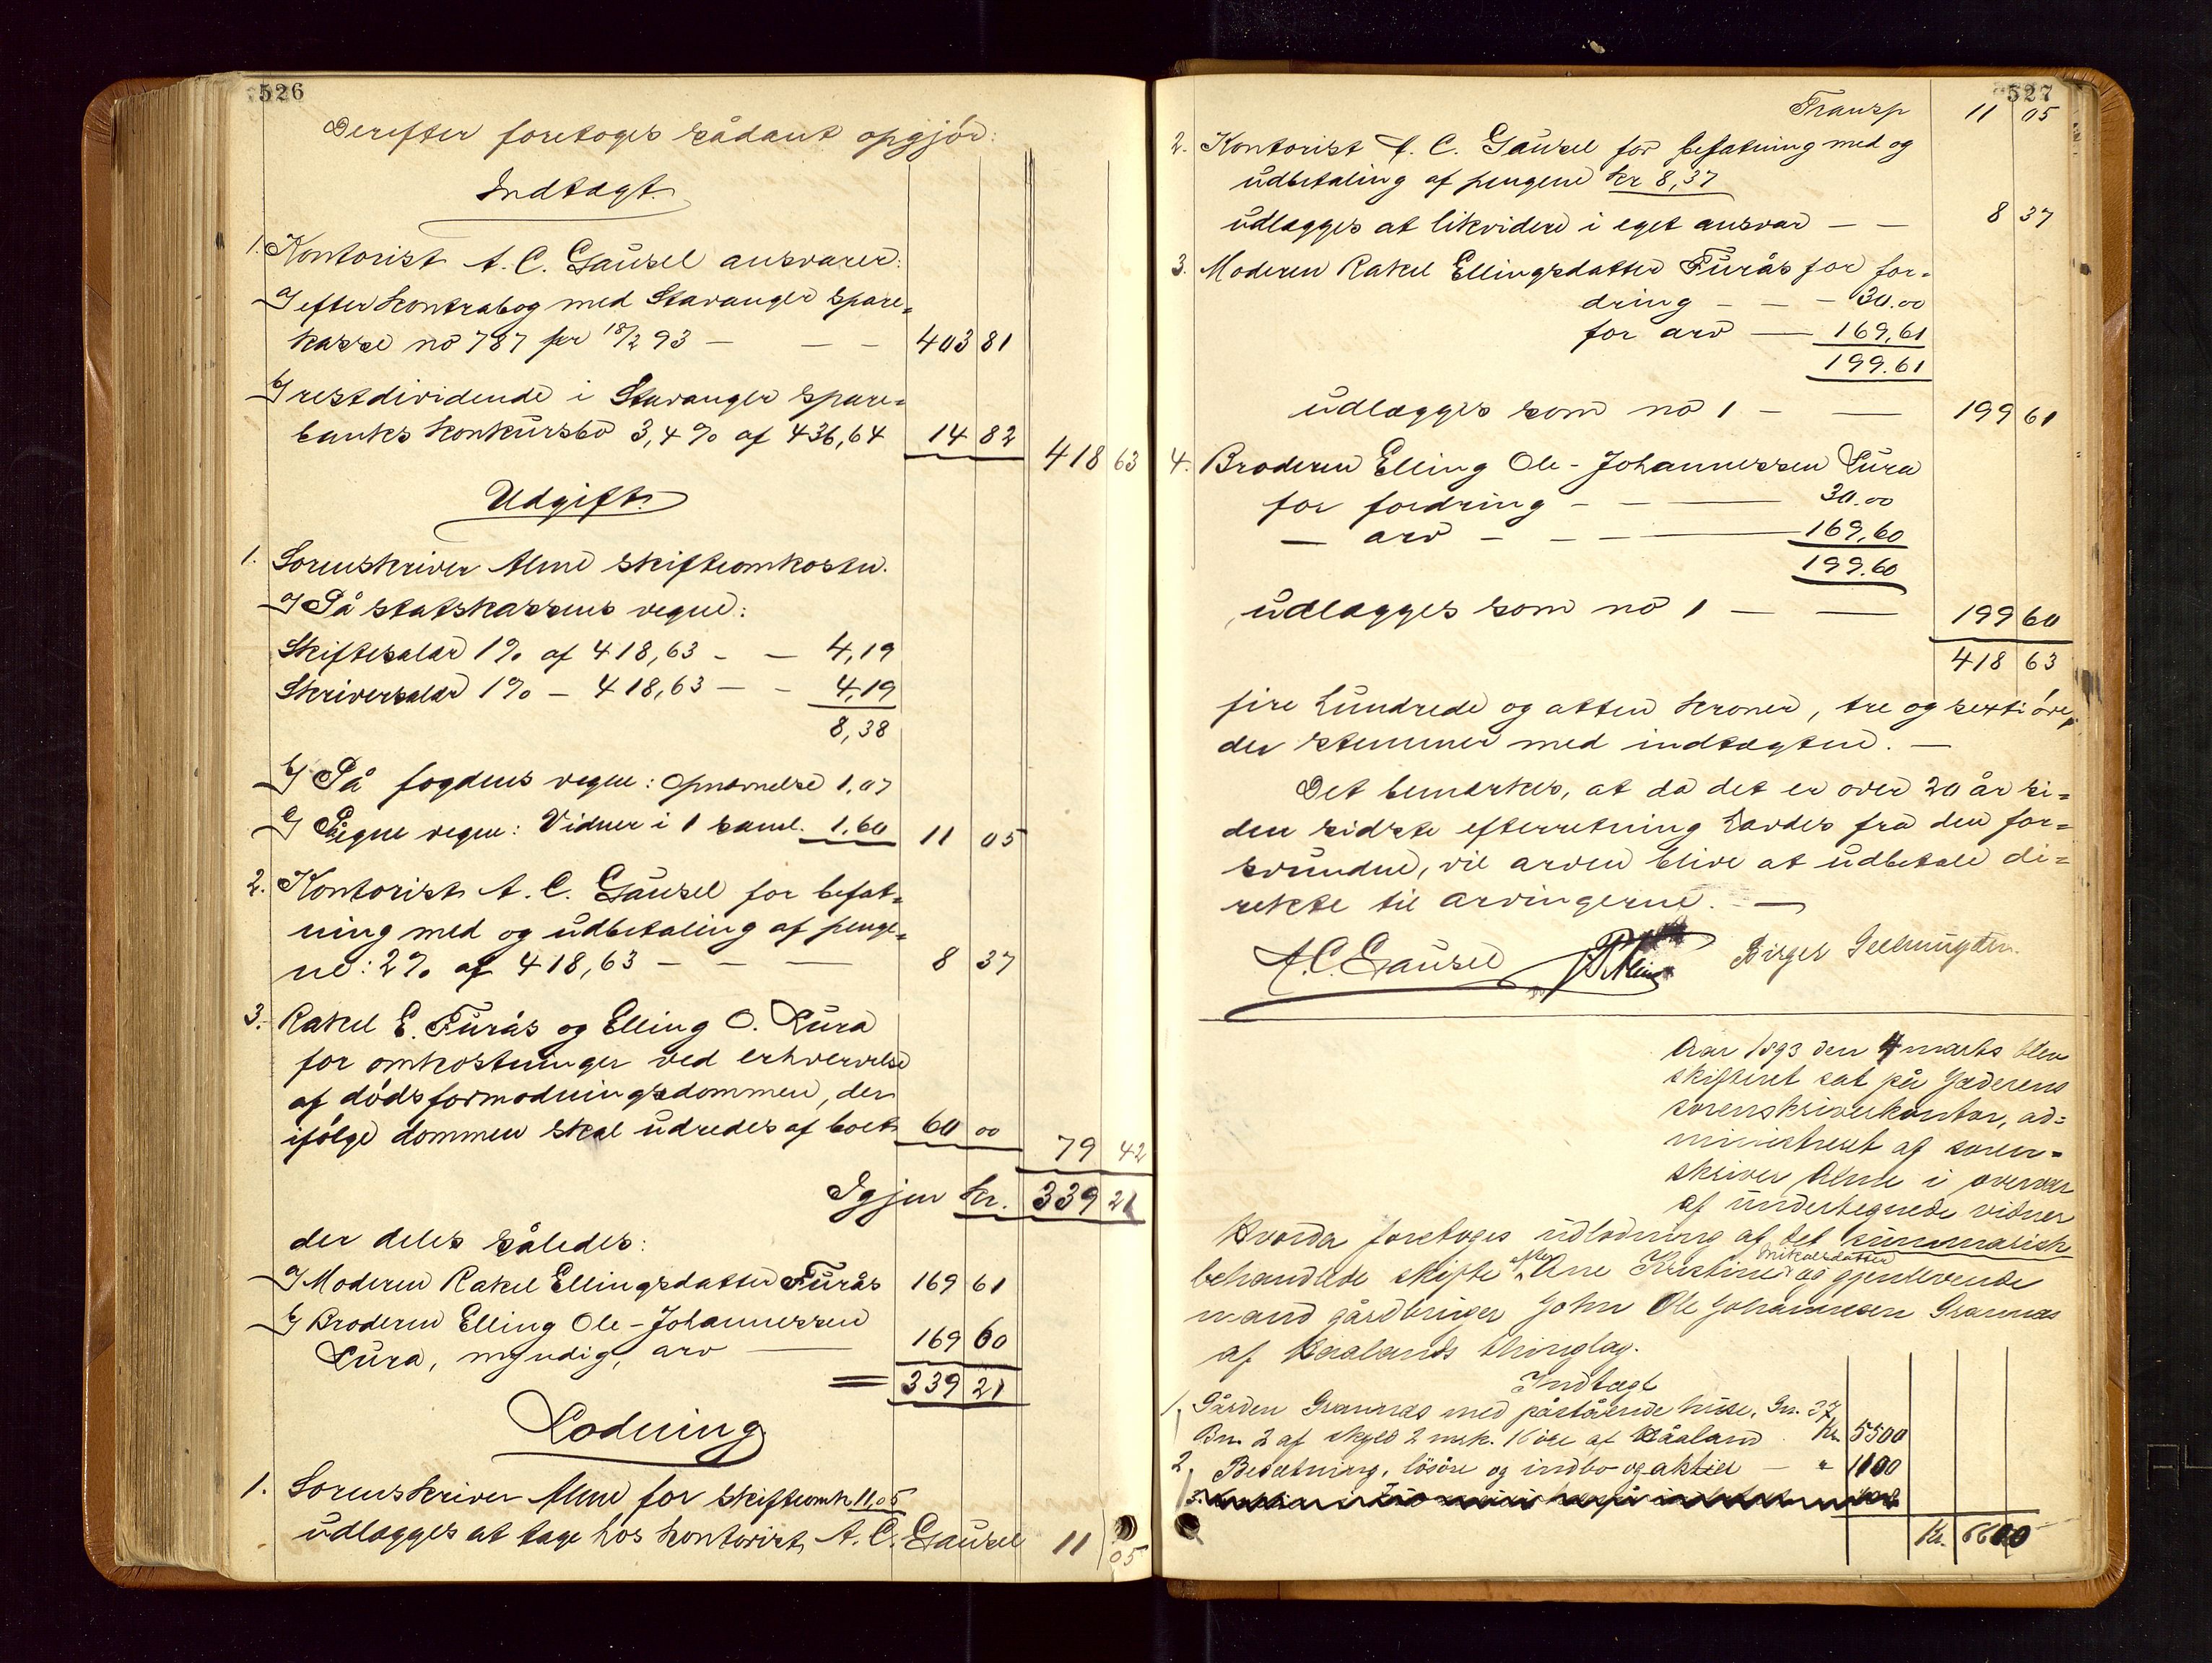 526
Derefter foretoges sådant opgjör:
Indtægt.
1. Kontorist A. C. Gausel ansvarer:
a) efter Kontrabog med Stavanger Spare-
kasse no 787 per 18/2 93 — — — 403 81
b) restdividende i Stavanger Spare-
banks Konkursbo 3,4 % af 436,64 14 82 418 63
Udgift.
1. Sorenskriver Alme skifteomkostn.
a) På statskassens vegne:
Skiftesalær 1 % af 418,63 — — 4,19
Skriversalær 1 % — 418,63 — — 4,19
8,38
b) På fogdens vegne: Opnævnelse 1,07
c) På egne vegne: Vidner i 1 saml. 1,60 11 05
2. Kontorist A. C. Gausel for befat-
ning med og udbetaling af penge-
ne: 2 % af 418,63 — — — 8 37
3. Rakel E. Furås og Elling O. Lura
for omkostninger ved erhvervelse
af dödsformodningsdommen, der
ifölge dommen skal udredes af boet 60 00 79 42
Igjen Kr. 339 21
der deles således:
a) Moderen Rakel Ellingsdatter Furås 169 61
b) Broderen Elling Ole-Johannessen
Lura, myndig, arv — 169 60
= 339 21
Lodning
1. Sorenskriver Alme for skifteomk 11,05
udlægges at tage hos Kontorist A. C. Gausel 11 05
527
Transp 11 05
2. Kontorist A. C. Gausel for befatning med og
udbetaling af pengene Kr 8,37
udlægges at likvidere i eget ansvar — — 8 37
3. Moderen Rakel Ellingsdatter Furås for for-
dring — — — 30.00
for arv — 169,61
199.61
udlægges som no 1 — — 199 61
4. Broderen Elling Ole-Johannessen Lura
for fordring — — 30.00
— arv — — — 169,60
199.60
udlægges som no 1 — — 199 60
418 63
fire hundrede og atten kroner, tre og sexti öre,
der stemmer med indtægten. —
Det bemærkes, at da det er over 20 år si-
den sidste efterretning havdes fra den for-
svundne, vil arven blive at udbetale di-
rekte til arvingerne. —
A. C. Gausel Alme Birger
Aar 1893 den 4 marts blev
skifteret sat på Jæderens
sorenskriverkontor, ad-
ministreret af soren-
skriver Alme i overvær
af undertegnede vidner
Hvorda foretoges udlodning af det summarisk
behandlede skifte efter Ane Kristine Mikalsdatter og gjenlevende
mand gårdbruger John Ole Johannesen Grannæs
af Haalands thinglag.
Indtægt
1. Gården Grannæs med påstående huse, Gn. 37
Bn. 2 af skyld 2 msk. 16 öre af Håland Kr. 5500
2. Besætning, lösöre og indbo og aktiet — " 1100
3.
Kr. 6600